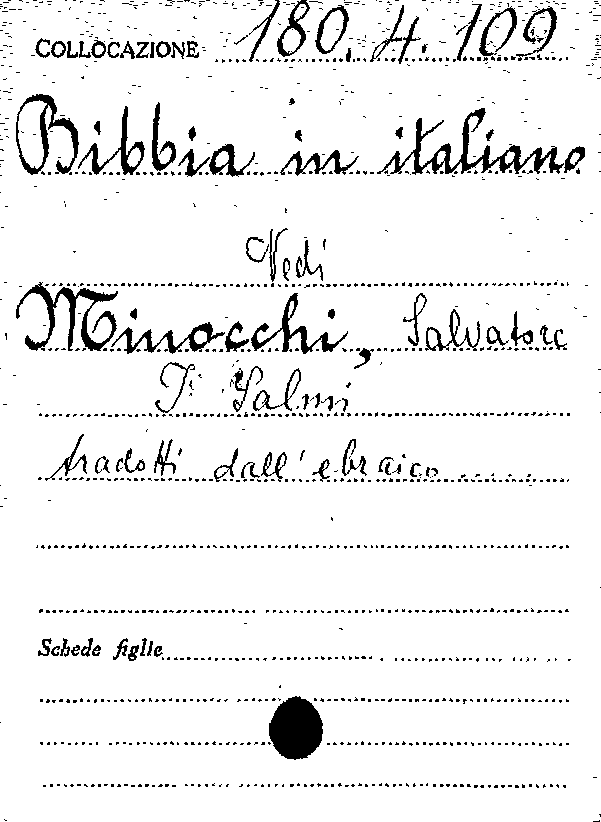 COLLOCAZIONE 180.4.109
Bibbia in italiano
Vedi
Minocchi, Salvatore
I Salmi
tradotti dall'ebraico .....
Schede figlie